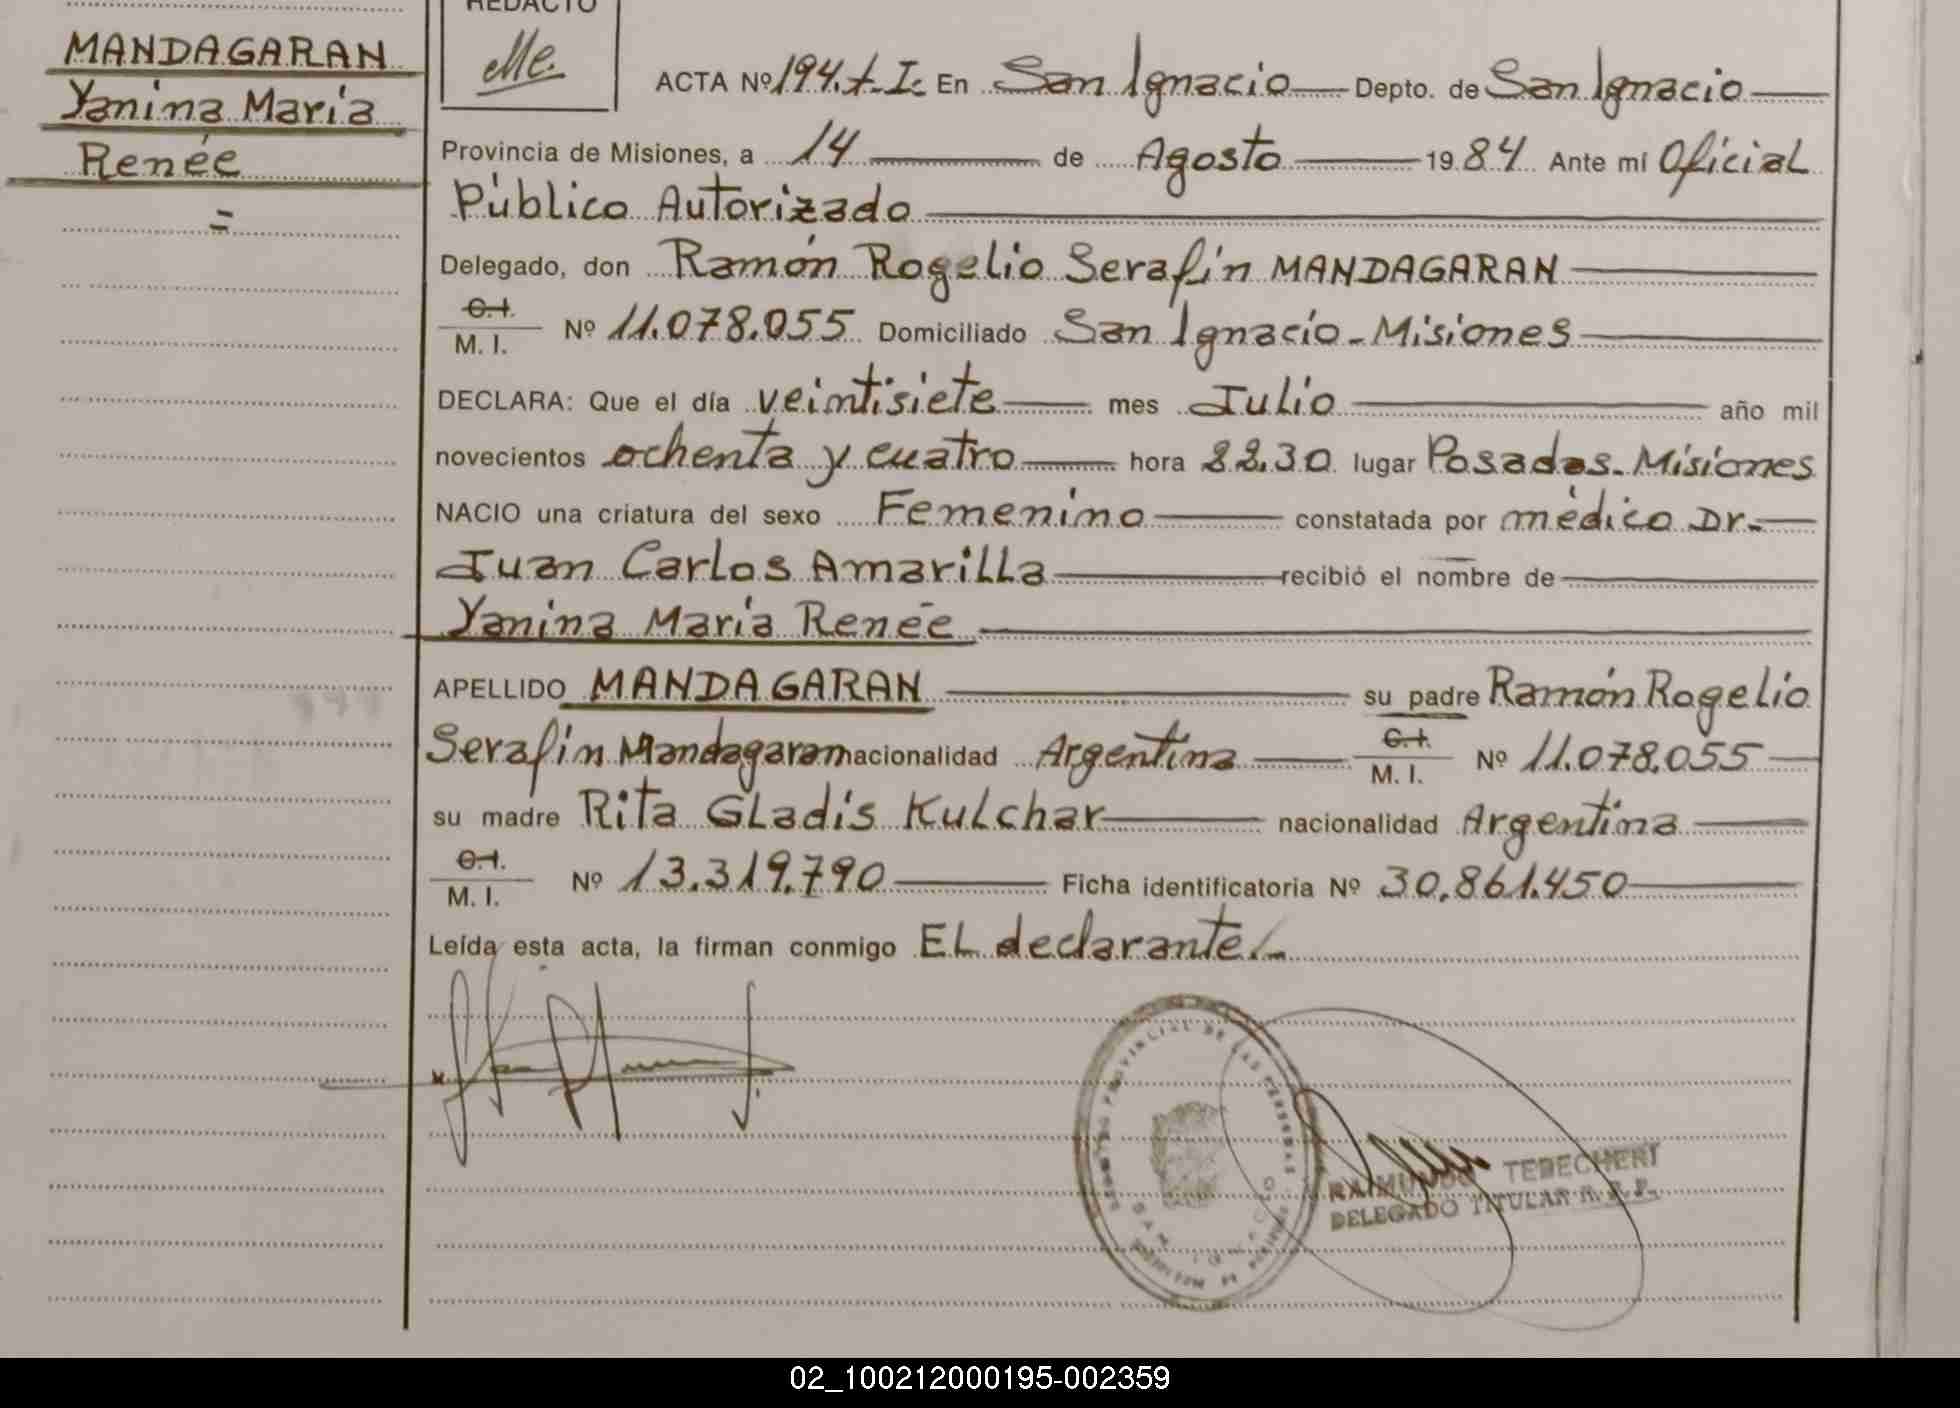 MANDAGARAN
Yanina María
Renée
=
REDACTO
ACTA Nº 194.t.I. En San Ignacio Depto. de San Ignacio
Provincia de Misiones, a 14 de Agosto 1984 Ante mí Oficial
Público Autorizado
Delegado, don Ramón Rogelio Serafín MANDAGARAN
C.I.
M. I. Nº 11.078.055 Domiciliado San Ignacio - Misiones
DECLARA: Que el día veintisiete mes Julio año mil
novecientos ochenta y cuatro hora 22.30 lugar Posadas - Misiones
NACIO una criatura del sexo Femenino constatada por médico Dr.
Juan Carlos Amarilla recibió el nombre de
Yanina María Renée
APELLIDO MANDAGARAN su padre Ramón Rogelio
Serafín Mandagaran nacionalidad Argentina C.I. M. I. Nº 11.078.055
su madre Rita Gladis Kulchar nacionalidad Argentina
C.I.
M. I. Nº 13.319.790 Ficha identificatoria Nº 30.861.450
Leída esta acta, la firman conmigo El declarante.-
REGISTRO PROVINCIAL DE LAS PERSONAS
SAN IGNACIO
PROVINCIA DE MISIONES
RAIMUNDO TEBECHERI
DELEGADO TITULAR R. P. P.
02_100212000195-002359